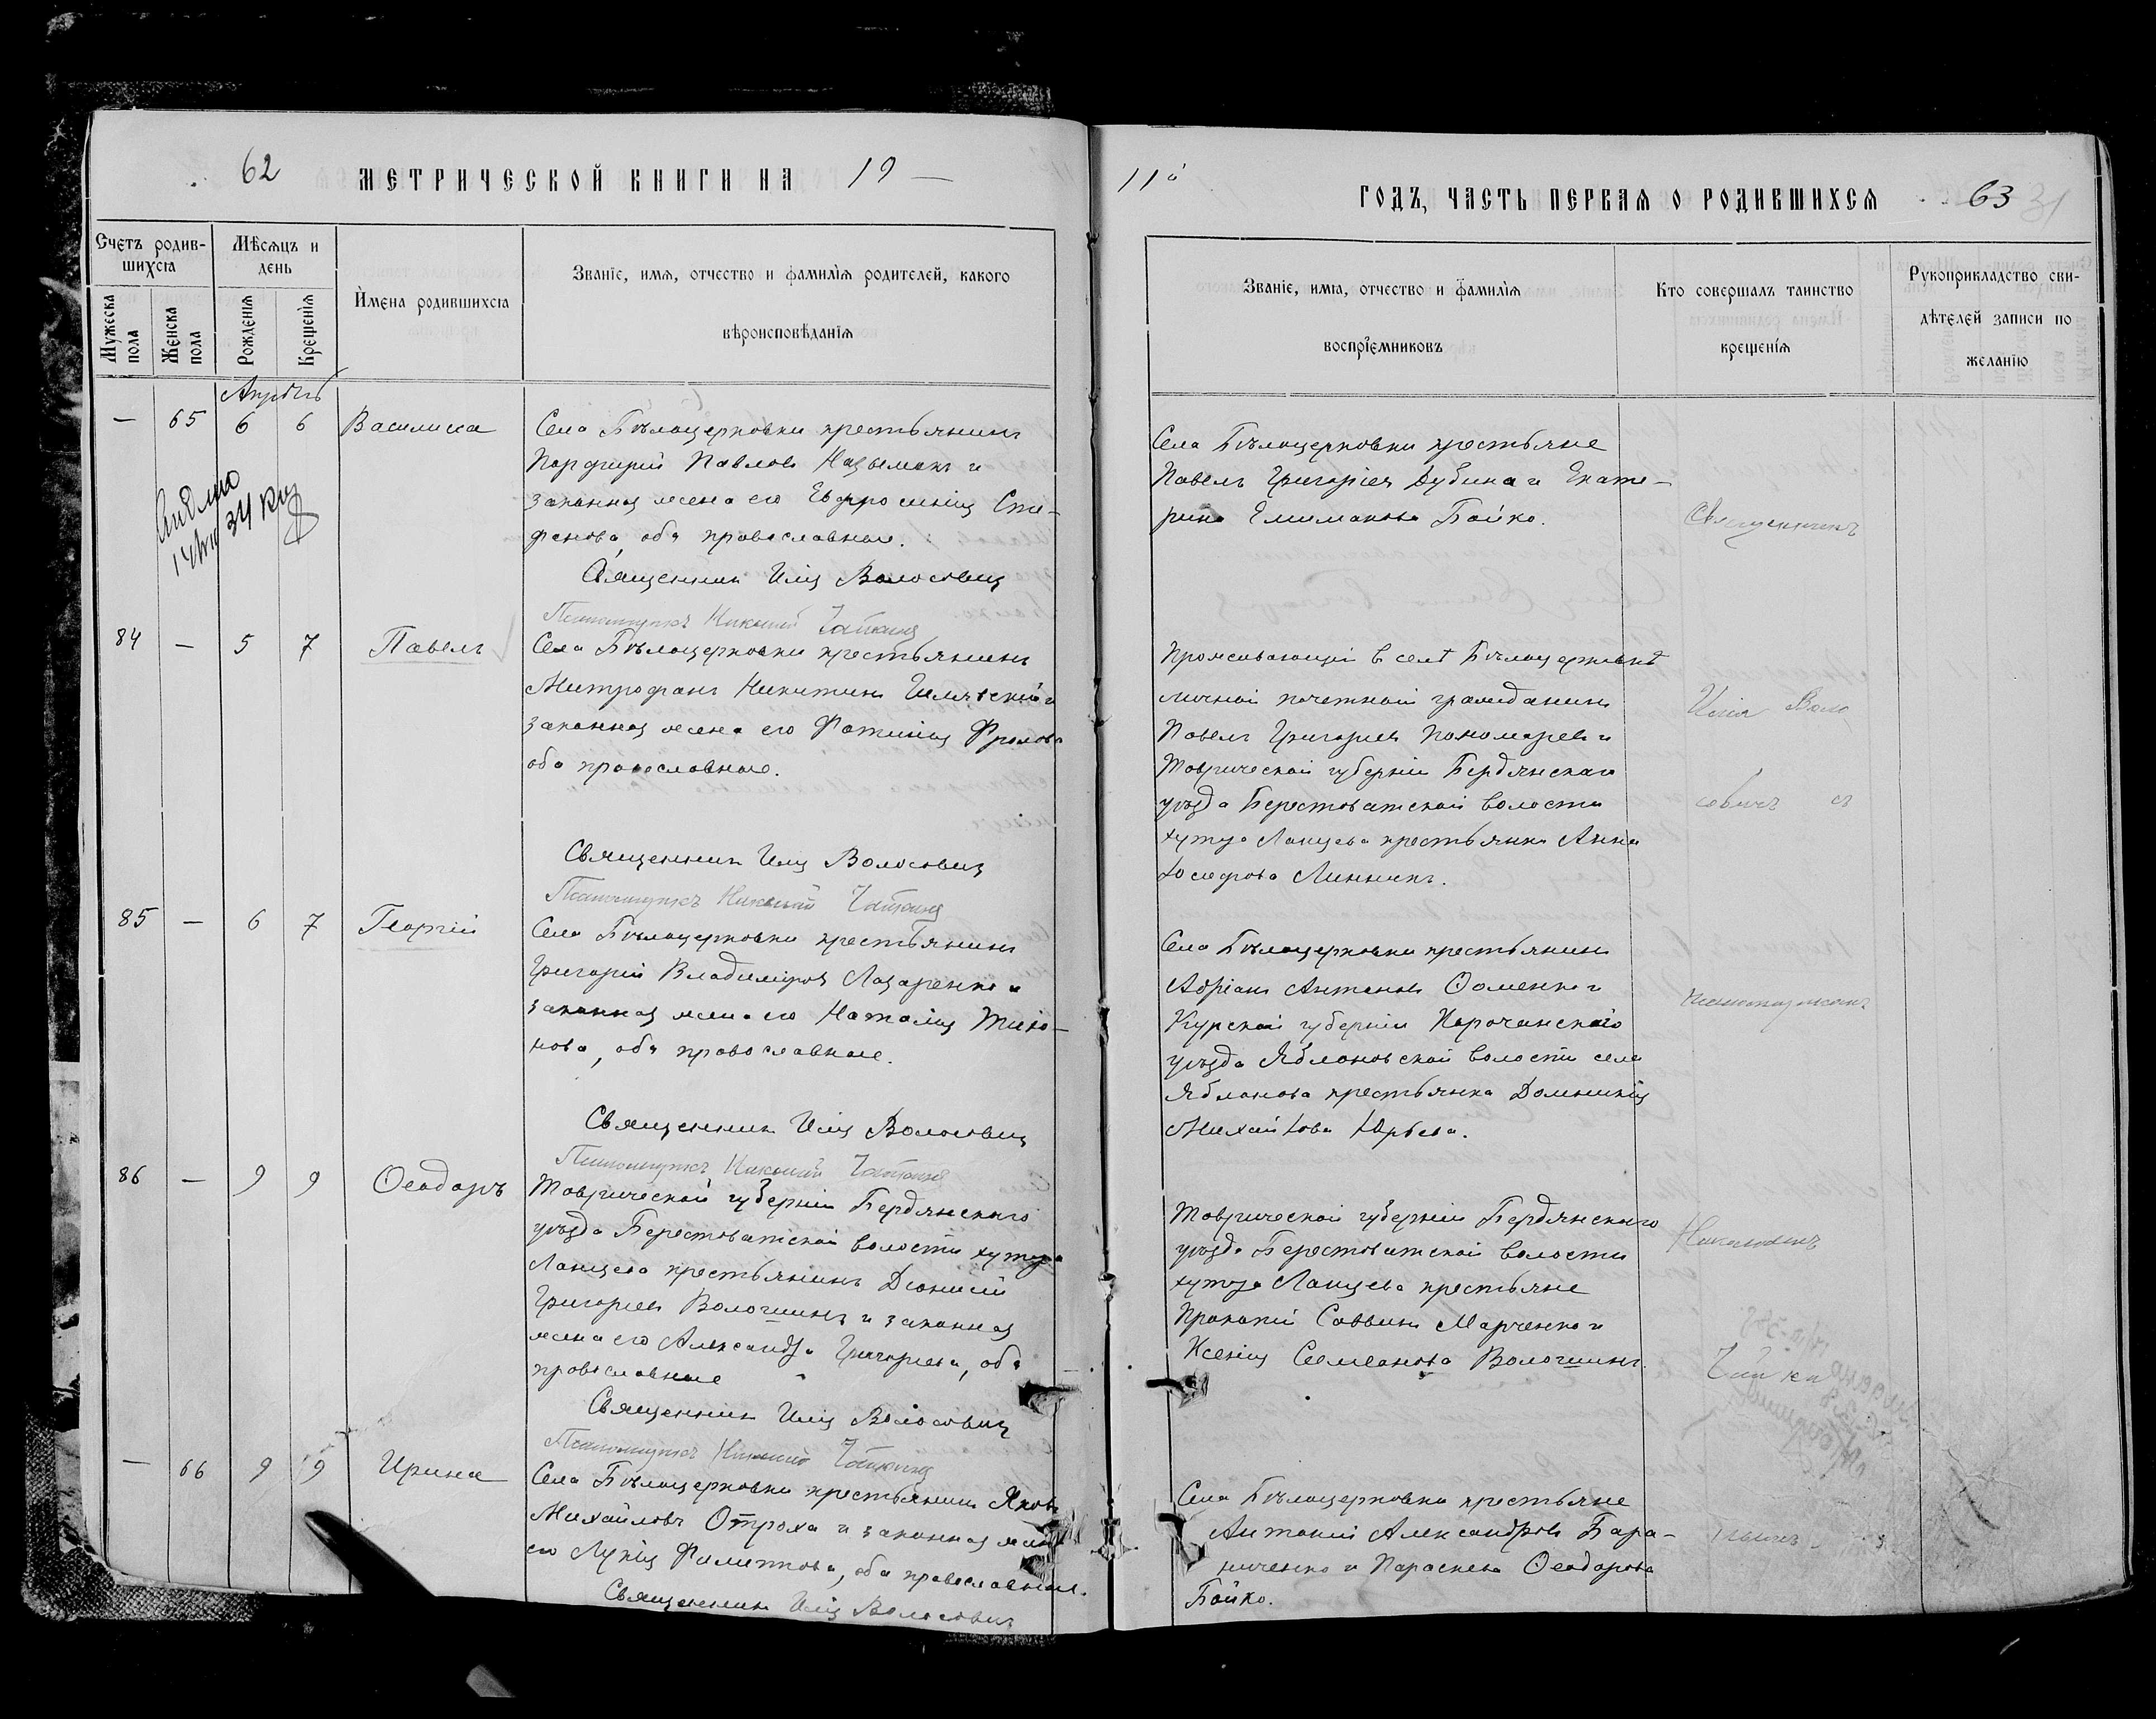 62 МЕТРИЧЕСКОЙ КНИГИ НА 19 —
Счетъ родив-
шихся
Мѣсяцъ и
день
Имена родившихся
Званіе, имя, отчество и фамилія родителей, какого
вѣроисповѣданія
Мужеска
пола
Женска
пола
Рожденія
Крещенія
Апрѣль
— 65 6 6 Василиса
Села Бѣлоцерковки крестьянинъ
Порфирій Павловъ и
законная жена его Евфросинія Сте-
фанова, оба православные.
Священникъ Илія Волосовичъ
Псаломщикъ Николай
84 — 5 7 Павелъ
Села Бѣлоцерковки крестьянинъ
Митрофанъ Никитинъ и
законная жена его Фотинія Фролова
оба православные.
Священникъ Илія Волосовичъ
Псаломщикъ Николай
85 — 6 7 Георгій
Села Бѣлоцерковки крестьянинъ
Григорій Владиміровъ Лазаренко и
законная жена его Наталія Тихо-
нова, оба православные.
Священникъ Илія Волосовичъ
Псаломщикъ Николай
86 — 9 9 Ѳеодоръ
Таврической губерніи Бердянскаго
уѣзда Берестоватской волости хутора
Ланцева крестьянинъ Діонисій
Григорьевъ Волошинъ и законная
жена его Александра Григорьева, оба
православные
Священникъ Илія Волосовичъ
Псаломщикъ Николай
— 66 9 9 Ирина
Села Бѣлоцерковки крестьянинъ Яковъ
Михайловъ Отроха и законная жена
его Лукія Филиппова, оба православные.
Священникъ Илія Волосовичъ
11й ГОДЪ, ЧАСТЬ ПЕРВАЯ О РОДИВШИХСЯ 63 31
Званіе, имя, отчество и фамилія
воспріемниковъ
Кто совершалъ таинство
крещенія
Рукоприкладство сви-
дѣтелей записи по
желанію
Села Бѣлоцерковки крестьяне
Павелъ Григоріевъ Дубина и Екате-
рина Бойко.
Проживающій в селѣ Бѣлоцерковкѣ
личной почетной гражданинъ
Павелъ Григорьевъ Пономаревъ и
Таврической губерніи Бердянскаго
уѣзда Берестоватской волости
хутора Ланцева крестьянка Анна
Іосифова Линникъ.
Села Бѣлоцерковки крестьянинъ
Адріанъ Антоновъ Ѳоменко и
Курской губерніи Корочанскаго
уѣзда Яблоновской волости села
Яблонова крестьянка Домникія
Михайлова Юрьева.
Таврической губерніи Бердянскаго
уѣзда Берестоватской волости
хутора Ланцева крестьяне
Прокопій Саввинъ Марченко и
Ксенія Семеонова Волошинъ.
Села Бѣлоцерковки крестьяне
Антоній Александровъ Бара-
ниченко и Параскева Ѳеодорова
Бойко.
Священникъ
Илія Воло
совичъ съ
псаломщикомъ
Николаемъ